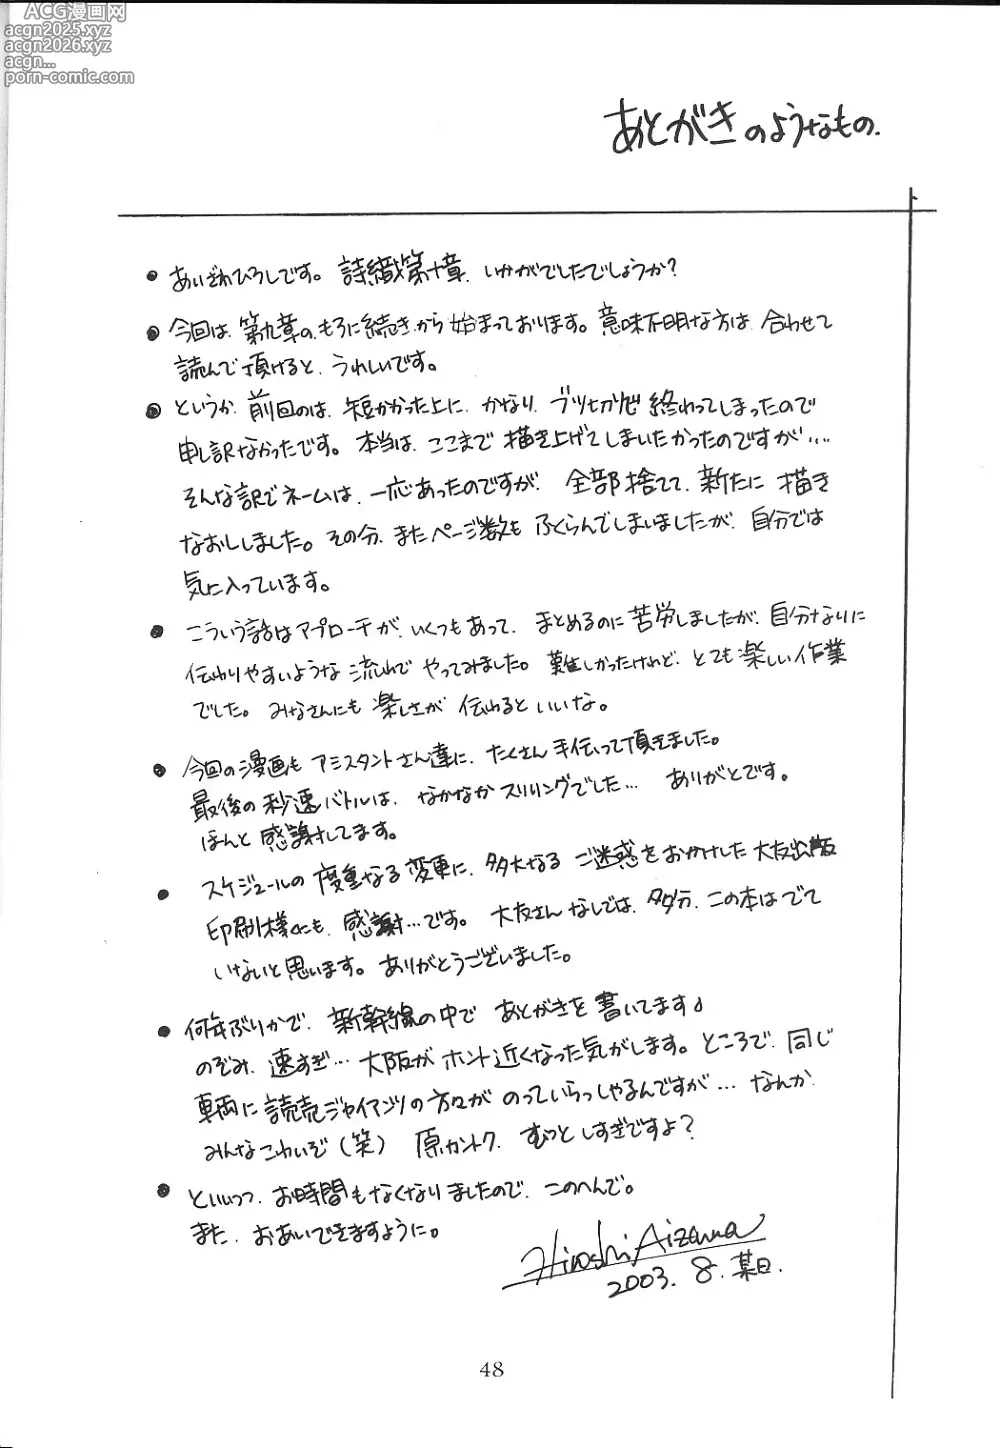 ACG漫画网
acgn2025.xyz
acgn2026.xyz
acgn...
porn-comic.com
あとがきのようなもの.
● あいざわひろしです。詩織第十章、いかがでしたでしょうか?
● 今回は、第九章の、もろに続きから始まっております。意味不明な方は、合わせて
読んで頂けると、うれしいです。
● というか、前回のは、短かかった上に、かなり、ブツ切りで終わってしまったので
申し訳なかったです。本当は、ここまで描き上げてしまいたかったのですが・・・
そんな訳でネームは、一応あったのですが、全部捨てて、新たに描き
なおししました。その分、またページ数もふくらんでしまいましたが、自分では
気に入っています。
● こういう話はアプローチが、いくつもあって、まとめるのに苦労しましたが、自分なりに
伝わりやすいような流れでやってみました。難しかったけれど、とても楽しい作業
でした。みなさんにも楽しさが伝わるといいな。
● 今回の漫画も、アシスタントさん達に、たくさん手伝って頂きました。
最後の秒速バトルは、なかなかスリリングでした… ありがとです。
ほんと感謝してます。
● スケジュールの度重なる変更に、多大なるご迷惑をおかけした大友出版
印刷様にも、感謝…です。大友さんなしでは、多分、この本はでて
いないと思います。ありがとうございました。
● 何年ぶりかで、新幹線の中であとがきを書いてます♪
のぞみ、速すぎ… 大阪がホント近くなった気がします。ところで、同じ
車両に読売ジャイアンツの方々がのっていらっしゃるんですが… なんか
みんなこわいぞ(笑) 原カントク、むっとしすぎですよ?
● といいつつ、お時間もなくなりましたので、このへんで。
また、おあいできますように。
Hiroshi Aizawa
2003. 8. 某日.
48